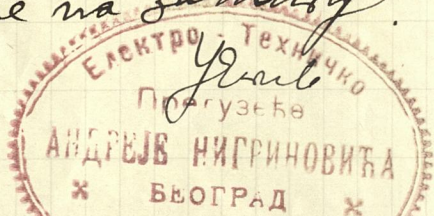 е на
Електро - Техничко
Предузеће
АНДРЕЈЕ НИГРИНОВИЋА
БЕОГРАД